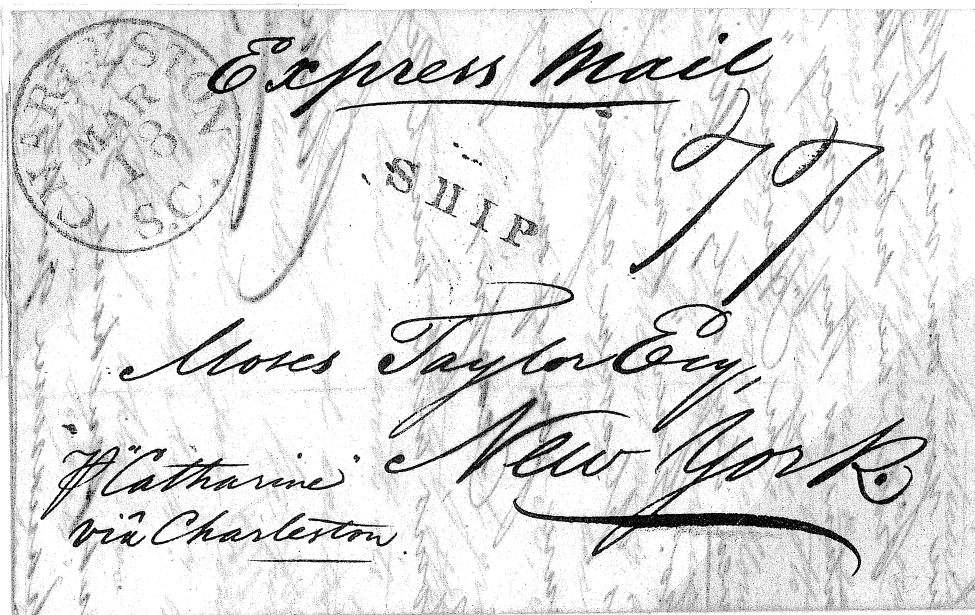 CHARLESTON S.C.
MAR
18
Express Mail
SHIP
77
Moses Taylor Esq,
New York.
p "Catharine"
via Charleston.